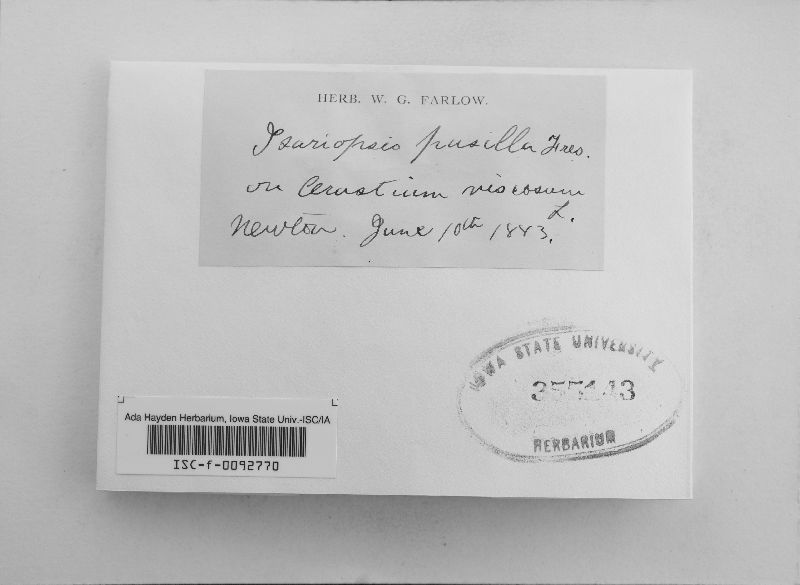 HERB. W. G. FARLOW.
Isariopsis pusilla Fres.
on Cerastium viscosum L.
Newton. June 10th 1883.
IOWA STATE UNIVERSITY
355143
HERBARIUM
Ada Hayden Herbarium, Iowa State Univ.-ISC/IA
ISC-f-0092770